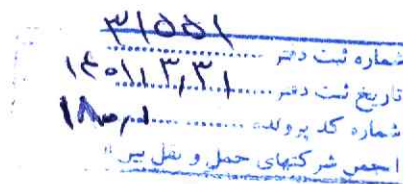 شماره ثبت دفتر ۳۱۵۵۱
تاریخ ثبت دفتر ۱۴۰۱/۳/۳۱
شماره کد پرونده
انجمن شرکتهای حمل و نقل بین